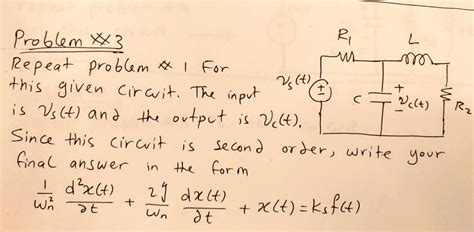 Problem ※ 3
Repeat problem ※ 1 for
this given circuit. The input
is υs(t) and the output is υc(t).
Since this circuit is second order, write your
final answer in the form
1/ωn² d²x(t)/∂t + 2ζ/ωn dx(t)/∂t + x(t) = Ks f(t)
R₁ L
υs(t) + - C + υc(t) - R₂